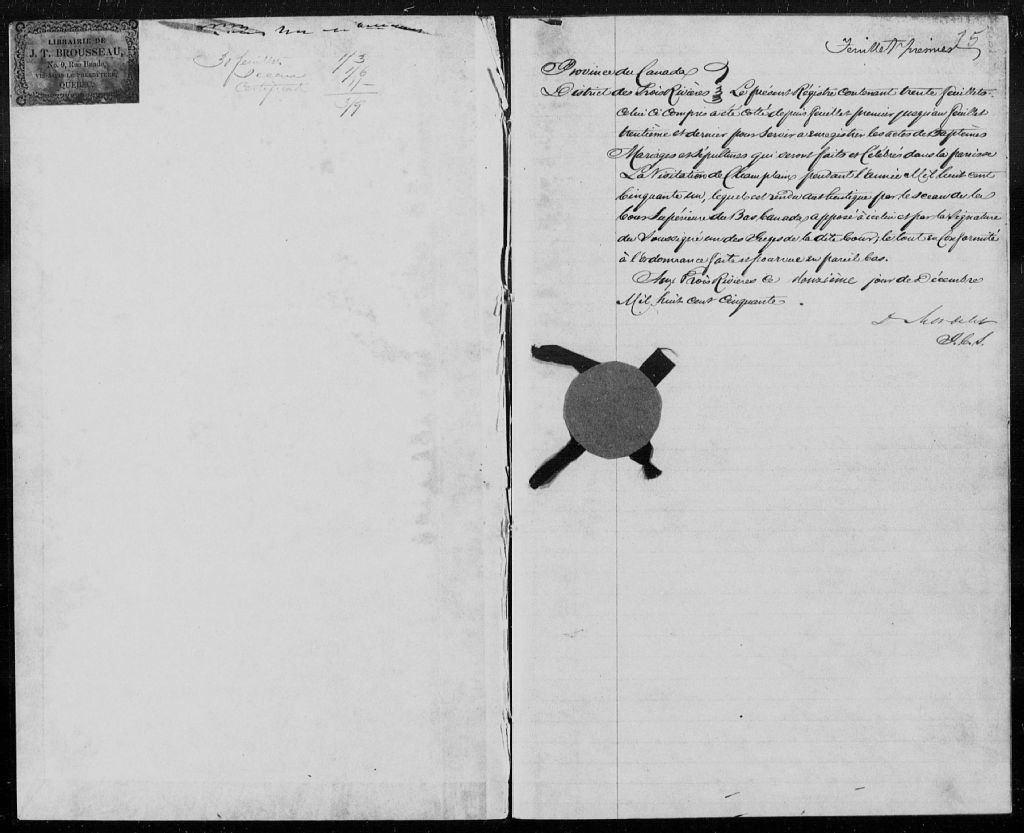 LIBRAIRIE DE
J. T. BROUSSEAU,
No. 9, Rue Buade,
VIS-À-VIS LE PRESBYTÈRE,
QUÉBEC.
1/3
Sceau 1/6
Certificat 1/-
3/9
75
Feuillet premier
Province du Canada
District des Trois Rivières Le présent Régistre contenant trente feuillets
celui ci compris a été cotté depuis feuillet premier jusqu'au feuillet
trentième et dernier pour servir a enregistrer les actes des Baptêmes
Mariages et Sépultures qui seront faits et Célébrés dans la paroisse
La Visitation de Champlain pendant l'année Mil huit cent
Cinquante un, lequel est rendu authentique par le sceau de la
Cour Supérieure du Bas Canada, apposé à icelui et par la Signature
du Soussigné un des Juges de la dite Cour, le tout en Conformité
à l'ordonnance faite et pourvue en pareil cas.
Aux Trois Rivières ce douzième jour de Décembre
Mil huit cent Cinquante.
D Mondelet
J.C.S.